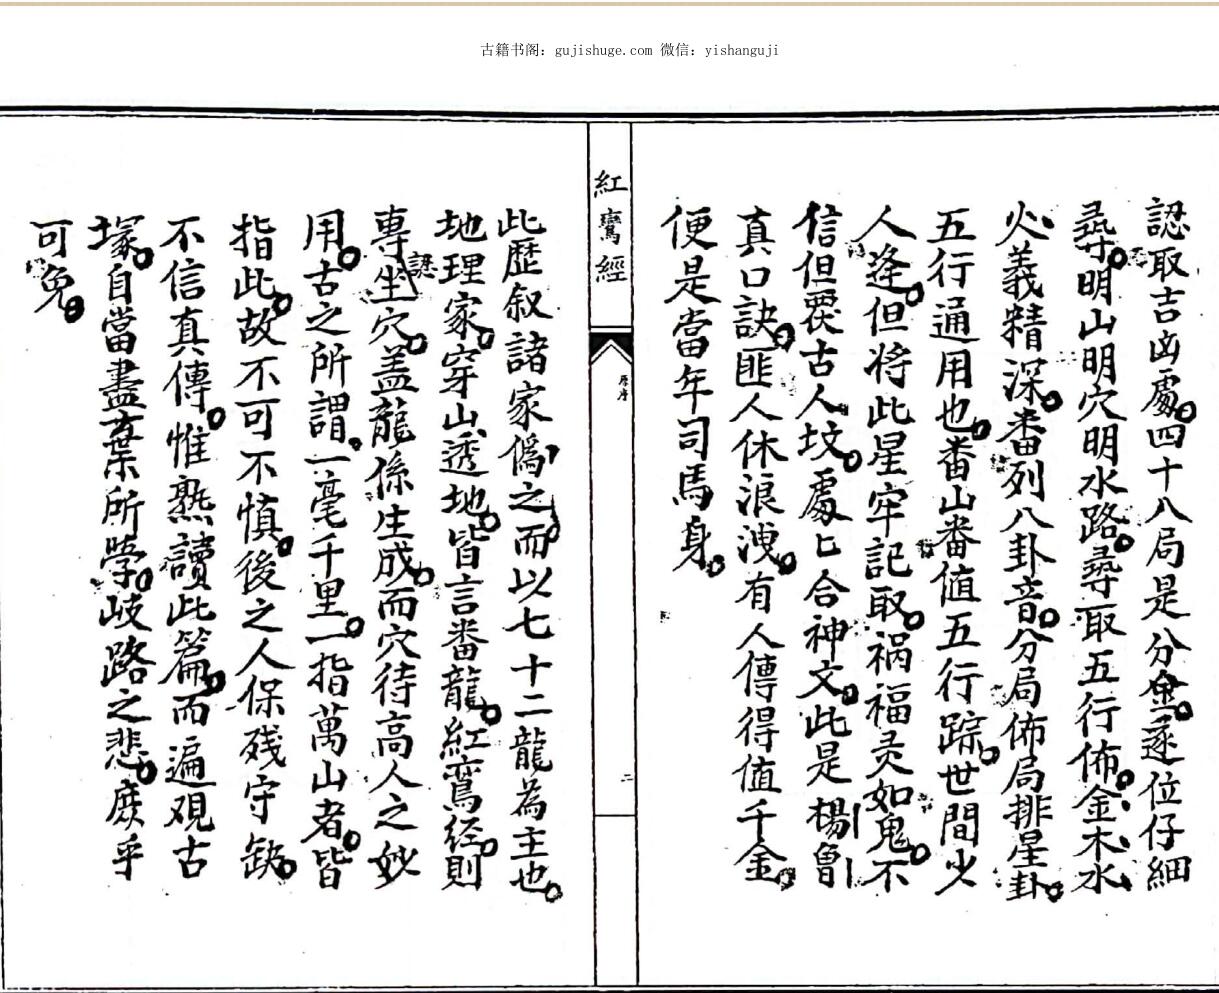 古籍书阁：gujishuge.com 微信：yishanguji
認取吉凶處四十八局是分金逐位仔細
尋明山明穴明水路尋取五行佈金木水
火義精深番列八卦音分局佈局排星卦
五行通用也番山番值五行踪世間少
人逢但将此星牢記取祸福灵如鬼不
信但覆古人坟處匕合神文此是楊曾
真口訣匪人休浪洩有人傳得值千金
便是當年司馬身
紅鸞經
二
此歴叙諸家僞之而以七十二龍為主也
地理家穿山透地皆言番龍紅鸾经則
專認坐穴盖龍係生成而穴待高人之妙
用古之所謂一毫千里一指萬山者皆
指此故不可不慎後之人保残守缺
不信真傳惟熟讀此篇而遍观古
塚自當盡棄所學岐路之悲庶乎
可免